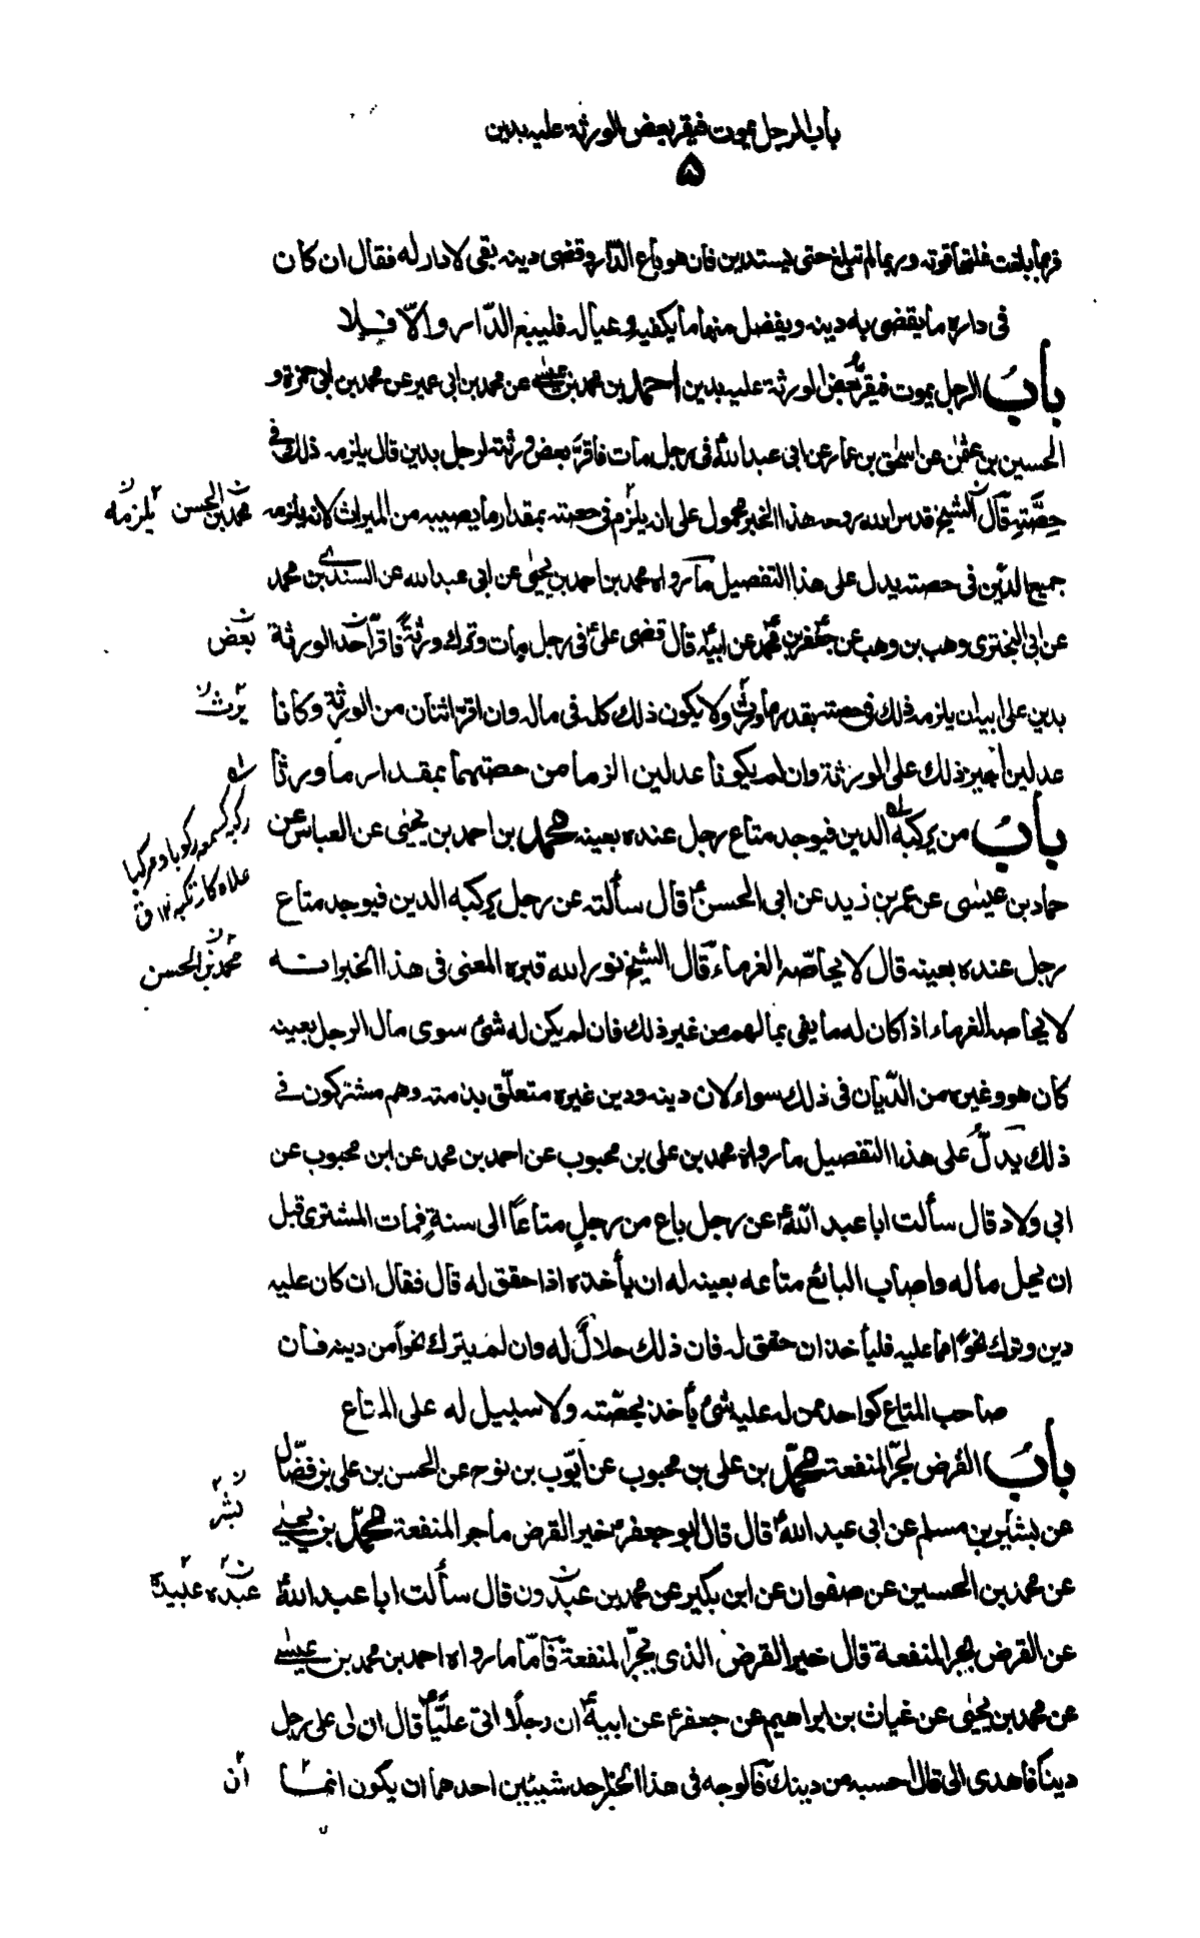 باب الرجل يموت فيقر بعض الورثة عليه بدين
٨
فربما بلغت غلتها قوته وربما لم تبلغ حتى يستدين فان هو باع الدّار وقضى دينه بقى لا دار له فقال ان كان
فى داره ما يقضى به دينه ويفضل منها ما يكفيه وعياله فليبع الدّار والّا فلا
بابُ الرجل يموت فيقرّ بعض الورثة عليه بدين احمد بن محمد بن عيسى عن محمد بن ابى عمير عن محمد بن ابى حمزة و
الحسين بن عثمٰن عن اسحٰق بن عمار عن ابى عبد اللهؑ فى رجل مات فاقرّ بعض ورثته لرجل بدين قال يلزمه ذلك فى
حِصَّتهِ قال الشيخ قدس الله روحه هذا الخبر محمول على انه يلزم فى حصته بمقدار ما يصيبه من الميراث لانه يلزمه
محمد بن الحسن يلزمه
جميع الدّين فى حصته يدل على هذا التفصيل ما رواه محمد بن احمد بن يحيٰى عن ابى عبد الله عن السندى بن محمد
عن ابى البخترى وهب بن وهب عن جعفر بن محمدؑ عن ابيهؑ قال قضى علىؑ فى رجل مات وترك ورثةً فاقرّ احد الورثة
بعض
بدين على ابيه ان يلزمه ذلك فى حصته بقدر ما ورث ولا يكون ذلك كله فى ماله وان اقرّ اثنان من الورثة وكانا
يرث
عدلين اجيز ذلك على الورثة وان لم يكونا عدلين الزما من حصتهما بمقدار ما ورثا
بابُ من يركبه الدين فيوجد متاع رجل عنده بعينه محمد بن احمد بن يحيٰى عن العباس عن
ركبه كسمعه ركوبا ومركبا
علاه كارتكبه ١٢ ق
حماد بن عيسٰى عن عمر بن زيد عن ابى الحسنؑ قال سألته عن رجل يركبه الدين فيوجد متاع
رجل عنده بعينه قال لا يحاصّه الغرماء قال الشيخ نور الله قبره المعنى فى هذا الخبر انه
محمد بن الحسن
لا يحاصه الغرماء اذا كان له ما يفى بمالهم من غير ذلك فان لم يكن له شئ سوى مال الرجل بعينه
كان هو وغيره من الدّيان فى ذلك سواء لان دينه ودين غيره متعلّق بذمته وهم مشتركون فى
ذلك يدلّ على هذا التفصيل ما رواه محمد بن على بن محبوب عن احمد بن محمد عن ابن محبوب عن
ابى ولاد قال سألت ابا عبد اللهؑ عن رجل باع من رجلٍ متاعًا الى سنةٍ فمات المشترى قبل
ان يحل ماله واصاب البائع متاعه بعينه له ان يأخذه اذا حقق له قال فقال ان كان عليه
دين وترك نحوًا مما عليه فليأخذ ان حقق له فان ذلك حلالٌ له وان لم يترك نحواً من دينه فان
صاحب المتاع كواحد ممن له عليه شئ يأخذ بحصّته ولا سبيل له على المتاع
بابُ القرض لجرّ المنفعة محمّد بن على بن محبوب عن ايّوب بن نوح عن الحسن بن على بن فضّال
عن بشير بن مسلم عن ابى عبد اللهؑ قال قال ابو جعفرؑ خير القرض ما جر المنفعة محمّد بن يحيٰى
بشر
عن محمد بن الحسين عن صفوان عن ابن بكير عن محمد بن عبدون قال سألت ابا عبد اللهؑ
عبده عبيدة
عن القرض يجر المنفعة قال خير القرض الذى يجرّ المنفعة فامّا ما رواه احمد بن محمد بن عيسٰى
عن محمد بن يحيٰى عن غياث بن ابراهيم عن جعفرؑ عن ابيهؑ ان رجلًا اتى عليًّاؑ قال ان لى على رجل
ديناً فاهدى الىّ قال احسبه من دينك فالوجه فى هذا الخبر احد شيئين احدهما ان يكون انما
ان